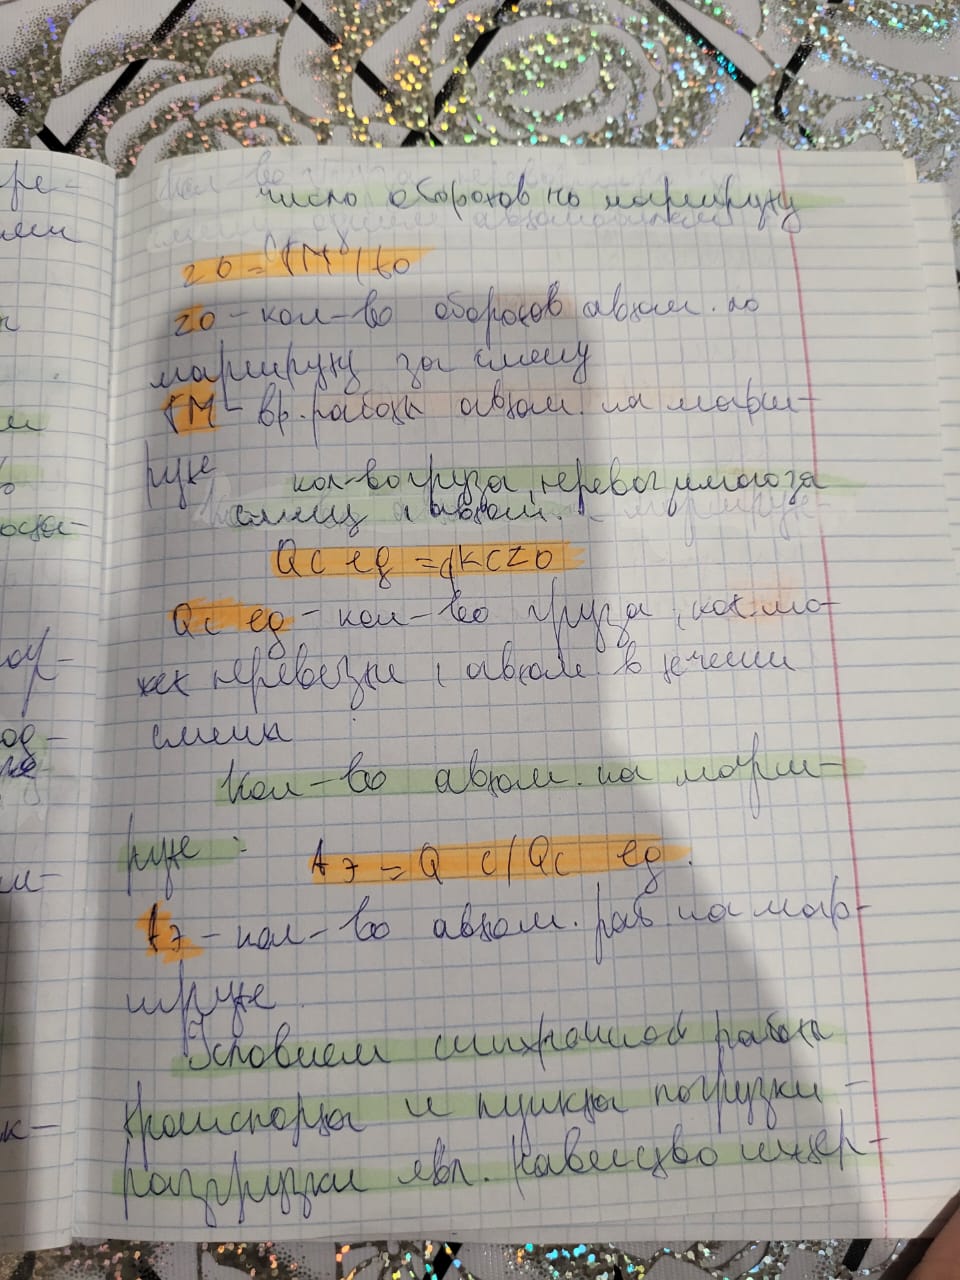 число оборотов на маршруту
zо = TM / tо
zо – кол-во оборотов автом. по
маршруту за смену
TM – вр. работы автом. на марш-
руте
кол-во груза, перевозимого за
смену 1 автом.
Qс ед = qKCZO
Qс ед – кол-во груза, кот. мо-
жет перевезти 1 автом. в течении
смены
Кол-во автом. на марш-
руте:
Аэ = Q с/Qс ед.
Аэ – кол-во автом. раб на мар-
шруте
Условием синхронной работы
транспорта и пункта погрузки –
разгрузки явл. равенство интер-
ре-
т
м
осta-
ор-
од-
м-
к-